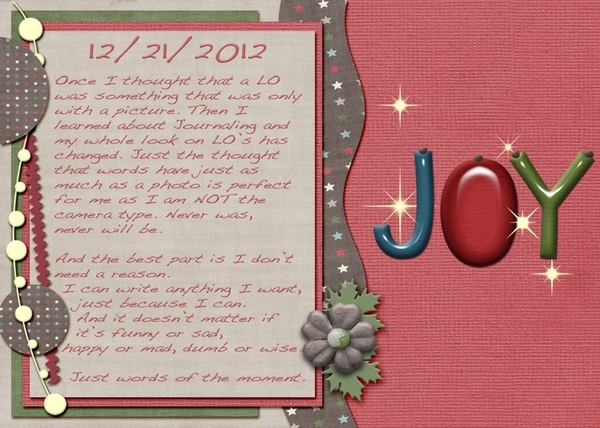 12/21/2012
Once I thought that a LO
was something that was only
with a picture. Then I
learned about Journaling and
my whole look on LO's has
changed. Just the thought
that words have just as
much as a photo is perfect
for me as I am NOT the
camera type. Never was,
never will be.
And the best part is I don't
need a reason.
I can write anything I want,
just because I can.
And it doesn't matter if
it's funny or sad,
happy or mad, dumb or wise.
Just words of the moment.
JOY